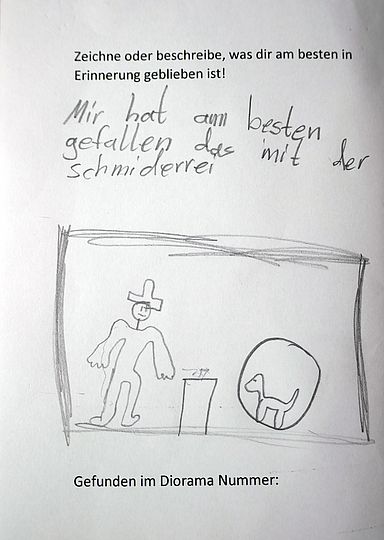 Zeichne oder beschreibe, was dir am besten in
Erinnerung geblieben ist!
Mir hat am besten
gefallen das mit der
schmiderrei
Gefunden im Diorama Nummer: